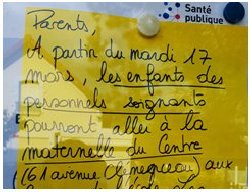 Santé
publique
Parents,
A partir du mardi 17
mars, les enfants des
personnels soignants
pourront aller à la
maternelle du Centre
(61 avenue Clémenceau) aux